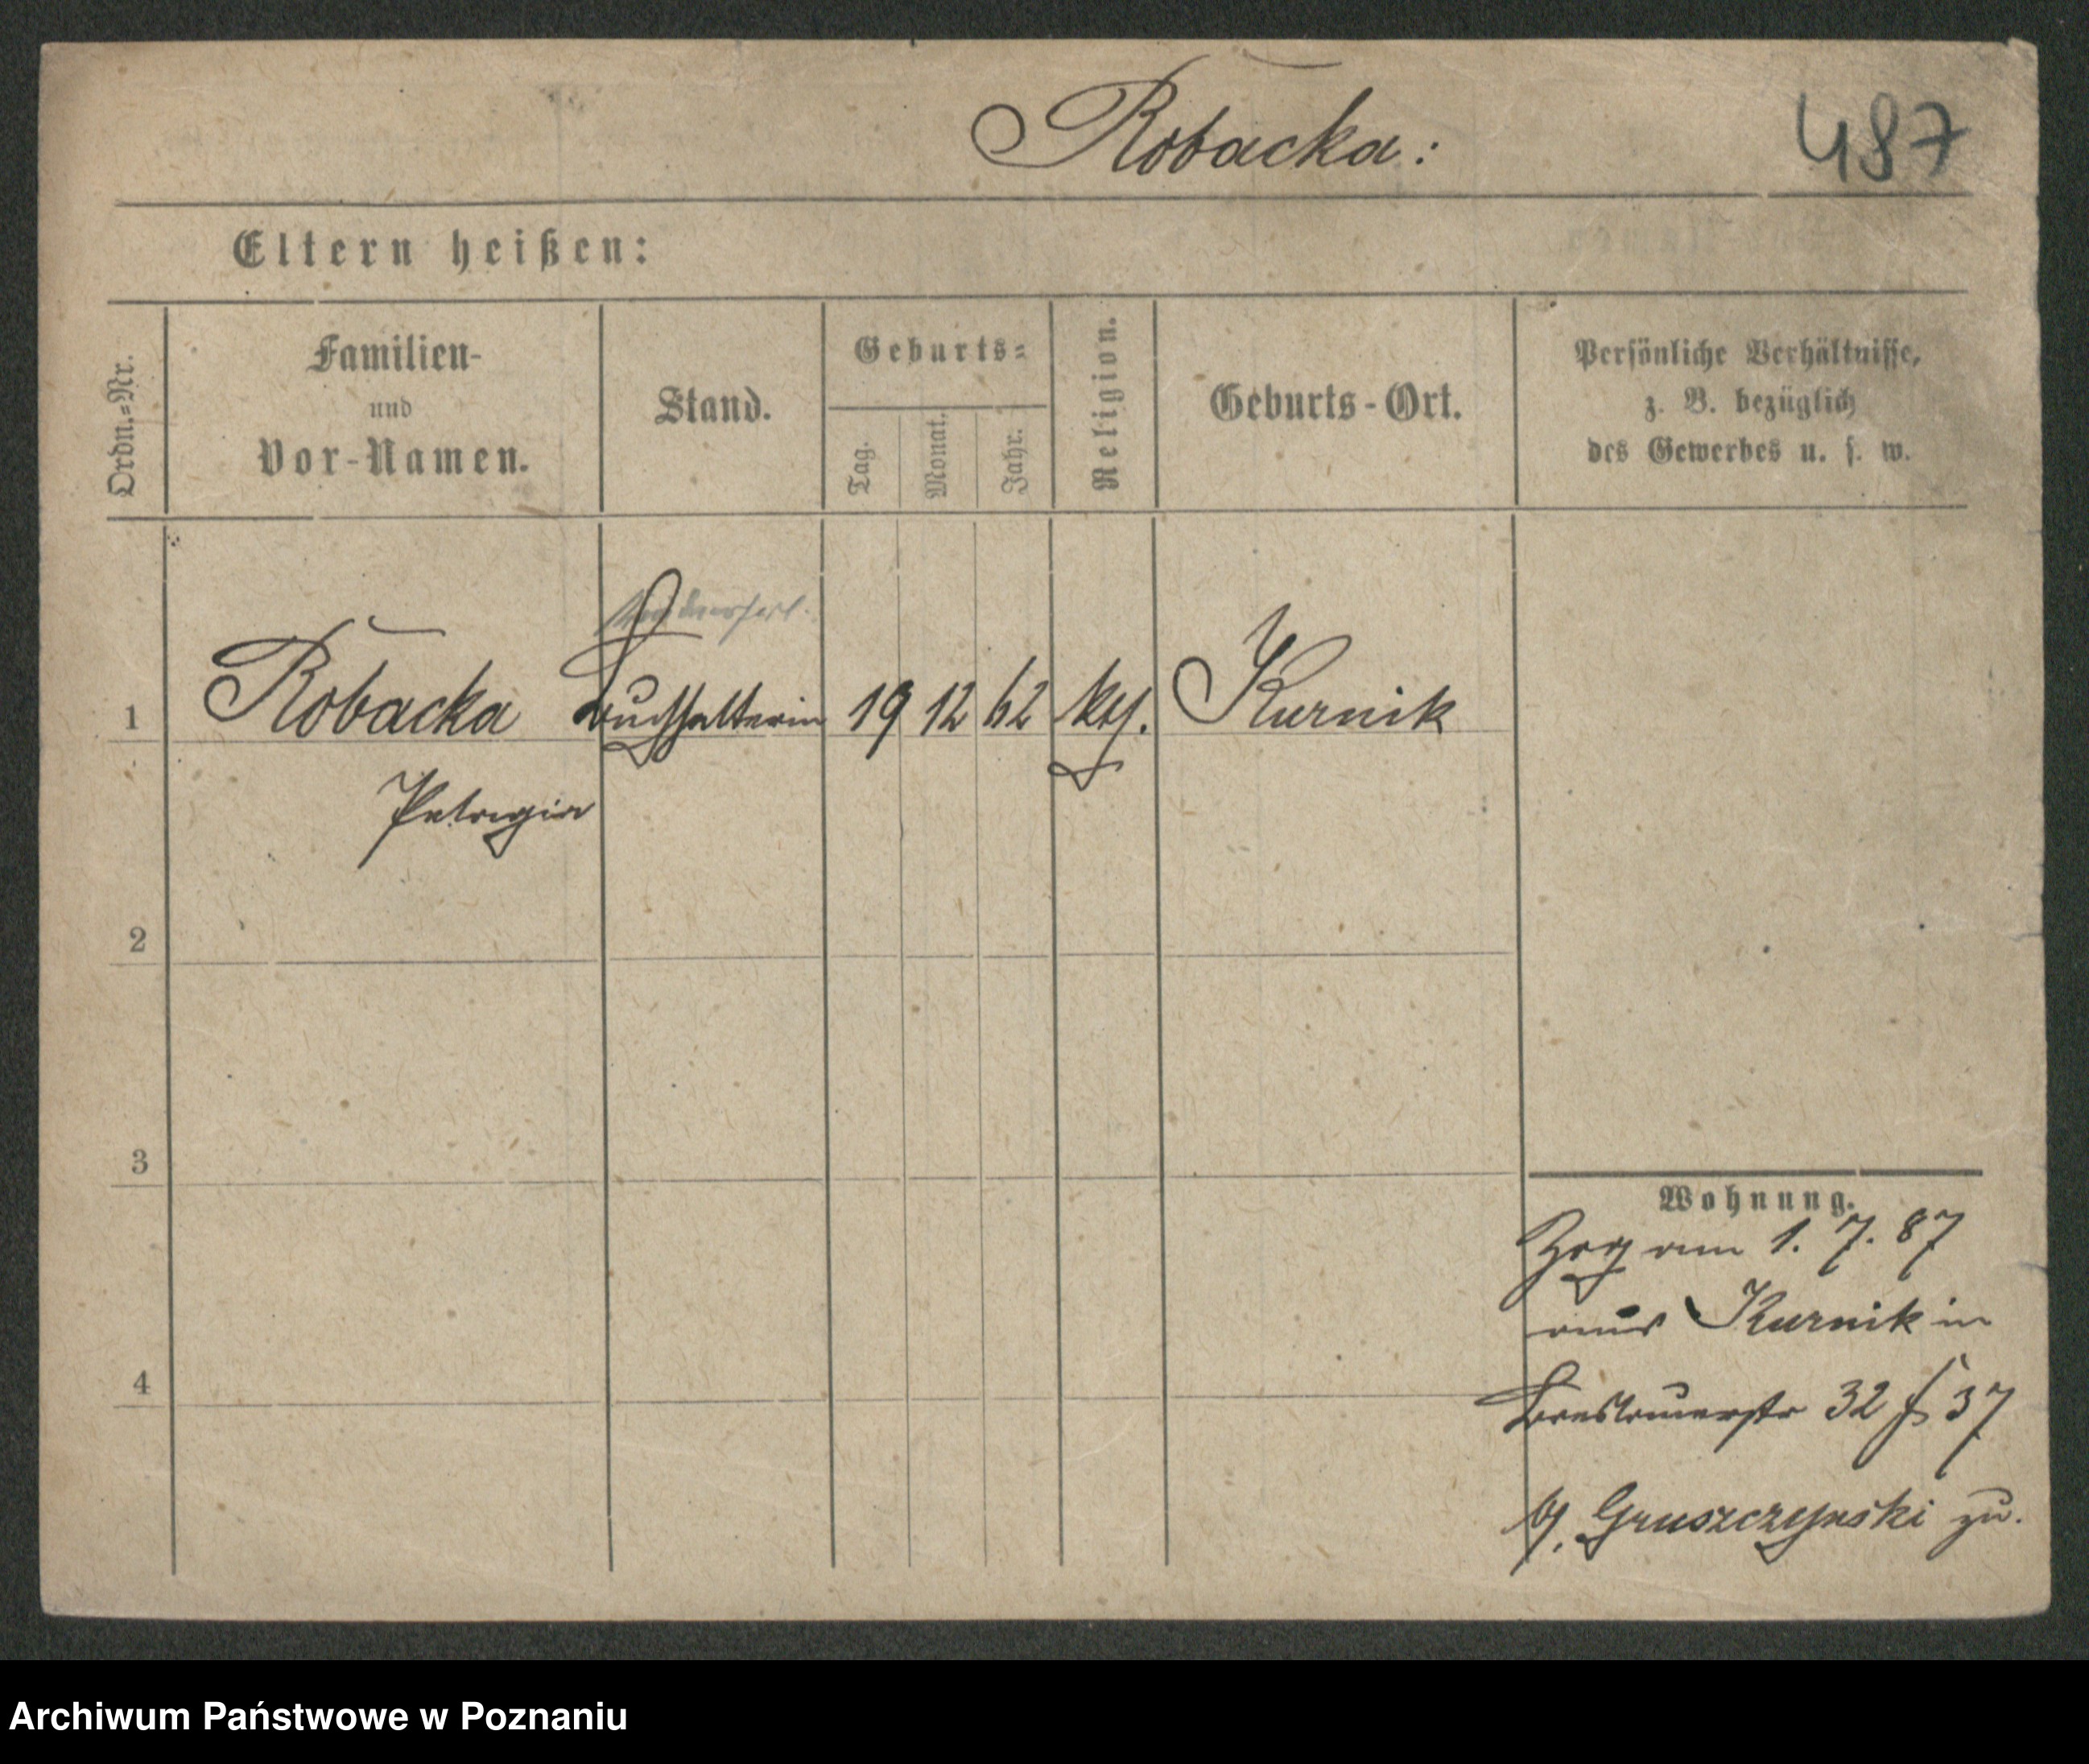 Robacka:
487
Eltern heißen:
Ordn.=Nr.
Familien-
und
Vor-Namen.
Stand.
Geburts=
Tag.
Monat.
Jahr.
Religion.
Geburts-Ort.
Persönliche Verhältnisse,
z. B. bezüglich
des Gewerbes u. s. w.
1
Robacka Buchhalterin 19 12 62 kth. Kurnik
2
3
4
Wohnung.
Zog am 1. 7. 87
aus Kurnik in
Breslauerstr 32 f 37
b/ Gruszczynski zu.
Archiwum Państwowe w Poznaniu